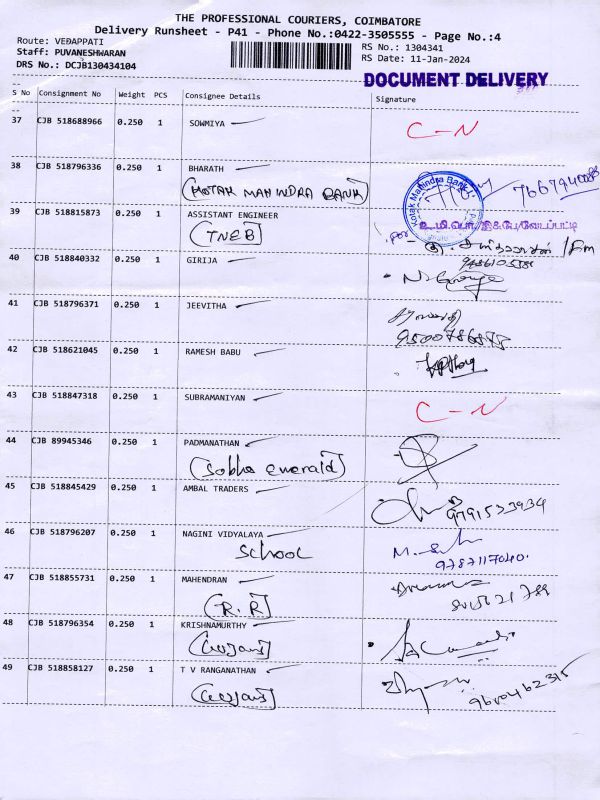 THE PROFESSIONAL COURIERS, COIMBATORE
Delivery Runsheet - P41 - Phone No.:0422-3505555 - Page No.:4
Route: VEDAPPATI
Staff: PUVANESHWARAN
DRS No.: DCJB130434104
RS No.: 1304341
RS Date: 11-Jan-2024
DOCUMENT DELIVERY
S No Consignment No Weight PCS Consignee Details Signature
37 CJB 518688966 0.250 1 SOWMIYA C-N
38 CJB 518796336 0.250 1 BHARATH
(KOTAK MAHINDRA BANK)
Kotak Mahindra Bank
39 CJB 518815873 0.250 1 ASSISTANT ENGINEER
(TNEB)
40 CJB 518840332 0.250 1 GIRIJA
41 CJB 518796371 0.250 1 JEEVITHA
42 CJB 518621045 0.250 1 RAMESH BABU
43 CJB 518847318 0.250 1 SUBRAMANIYAN C-N
44 CJB 89945346 0.250 1 PADMANATHAN
(Sobha emerald)
45 CJB 518845429 0.250 1 AMBAL TRADERS 9791533934
46 CJB 518796207 0.250 1 NAGINI VIDYALAYA
SCHOOL 9787117040.
47 CJB 518855731 0.250 1 MAHENDRAN
(R.R)
48 CJB 518796354 0.250 1 KRISHNAMURTHY
49 CJB 518858127 0.250 1 T V RANGANATHAN
9600462315